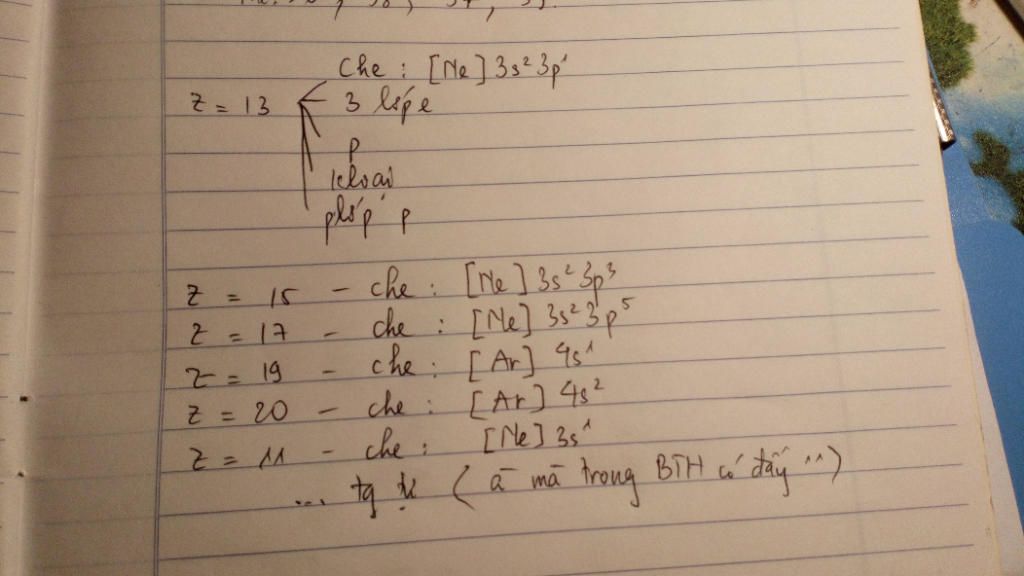 che : [Ne] 3s² 3p¹
Z = 13 3 lớp e
p
kloại
plớp p
Z = 15 - che : [Ne] 3s² 3p³
Z = 17 - che : [Ne] 3s² 3p⁵
Z = 19 - che : [Ar] 4s¹
Z = 20 - che : [Ar] 4s²
Z = 11 - che : [Ne] 3s¹
... tg tự ( à mà trong BTH có đấy ^^ )